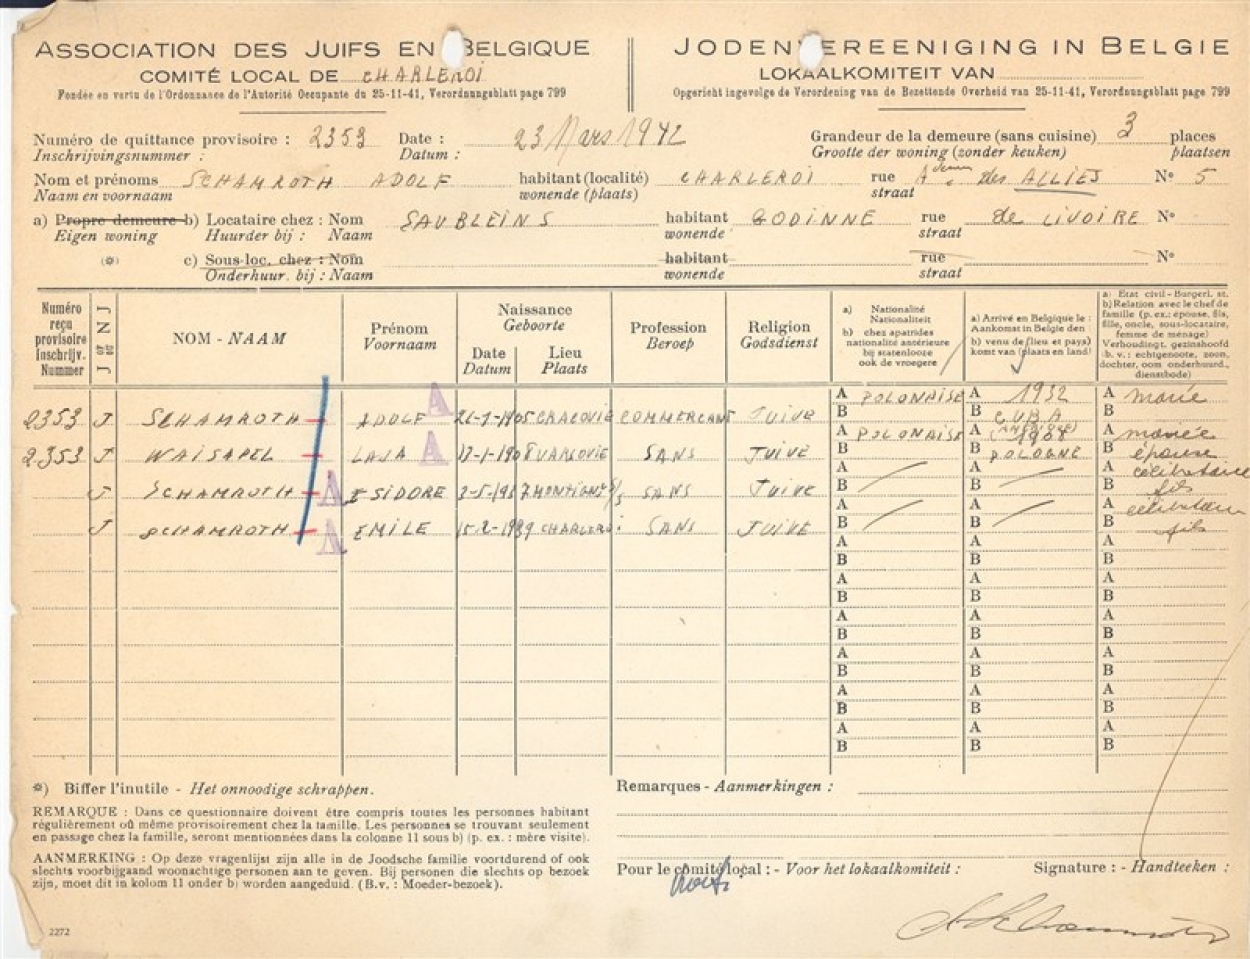 ASSOCIATION DES JUIFS EN BELGIQUE
COMITÉ LOCAL DE CHARLEROI
Fondée en vertu de l'Ordonnance de l'Autorité Occupante du 25-11-41, Verordnungsblatt page 799
JODENVEREENIGING IN BELGIE
LOKAALKOMITEIT VAN
Opgericht ingevolge de Verordening van de Bezettende Overheid van 25-11-41, Verordnungsblatt page 799
Numéro de quittance provisoire : 2353 Date : 23 Mars 1942 Grandeur de la demeure (sans cuisine) 3 places
Inschrijvingsnummer : Datum : Grootte der woning (zonder keuken) plaatsen
Nom et prénoms SCHAMROTH ADOLF habitant (localité) CHARLEROI rue des ALLIES No 5
Naam en voornaam wonende (plaats) straat
a) Propre demeure b) Locataire chez : Nom SAUBLEINS habitant GODINNE rue de LIVOIRE No
Eigen woning Huurder bij : Naam wonende straat
(*) c) Sous-loc. chez : Nom habitant rue No
Onderhuur. bij : Naam wonende straat
Numéro reçu provisoire Inschrijv. Nummer
J ou of N J
NOM - NAAM
Prénom
Voornaam
Naissance
Geboorte
Date
Datum
Lieu
Plaats
Profession
Beroep
Religion
Godsdienst
a) Nationalité
Nationaliteit
b) chez apatrides
nationalité antérieure
bij statenlooze
ook de vroegere
a) Arrivé en Belgique le :
Aankomst in Belgie den
b) venu de (lieu et pays)
komt van (plaats en land)
a) Etat civil - Burgerl. st.
b) Relation avec le chef de
famille (p. ex.: épouse, fils,
fille, oncle, sous-locataire,
femme de ménage)
Verhoudingt. gezinshoofd
(b. v. : echtgenoote, zoon,
dochter, oom onderhuurd.,
dienstbode)
2353 J SCHAMROTH ADOLF A CRACOVIE COMMERCANT JUIVE A POLONAISE A 1932 A marié
B B CUBA B
2353 J WAISAPEL LAJA A 17-1-1908 VARSOVIE SANS JUIVE A POLONAISE A 1928 A mariée
B B POLOGNE B épouse
J SCHAMROTH A ISIDORE SANS JUIVE A A A célibataire
B B B fils
J SCHAMROTH A EMILE 15-2-1939 CHARLEROI SANS JUIVE A A A célibataire
B B B fils
A A A
B B B
A A A
B B B
A A A
B B B
A A A
B B B
A A A
B B B
A A A
B B B
*) Biffer l'inutile - Het onnoodige schrappen.
REMARQUE : Dans ce questionnaire doivent être compris toutes les personnes habitant
régulièrement où même provisoirement chez la famille. Les personnes se trouvant seulement
en passage chez la famille, seront mentionnées dans la colonne 11 sous b) (p. ex. : mère visite).
AANMERKING : Op deze vragenlijst zijn alle in de Joodsche familie voortdurend of ook
slechts voorbijgaand woonachtige personen aan te geven. Bij personen die slechts op bezoek
zijn, moet dit in kolom 11 onder b) worden aangeduid. (B.v. : Moeder-bezoek).
2272
Remarques - Aanmerkingen :
Pour le comité local : - Voor het lokaalkomiteit : Signature : - Handteeken :